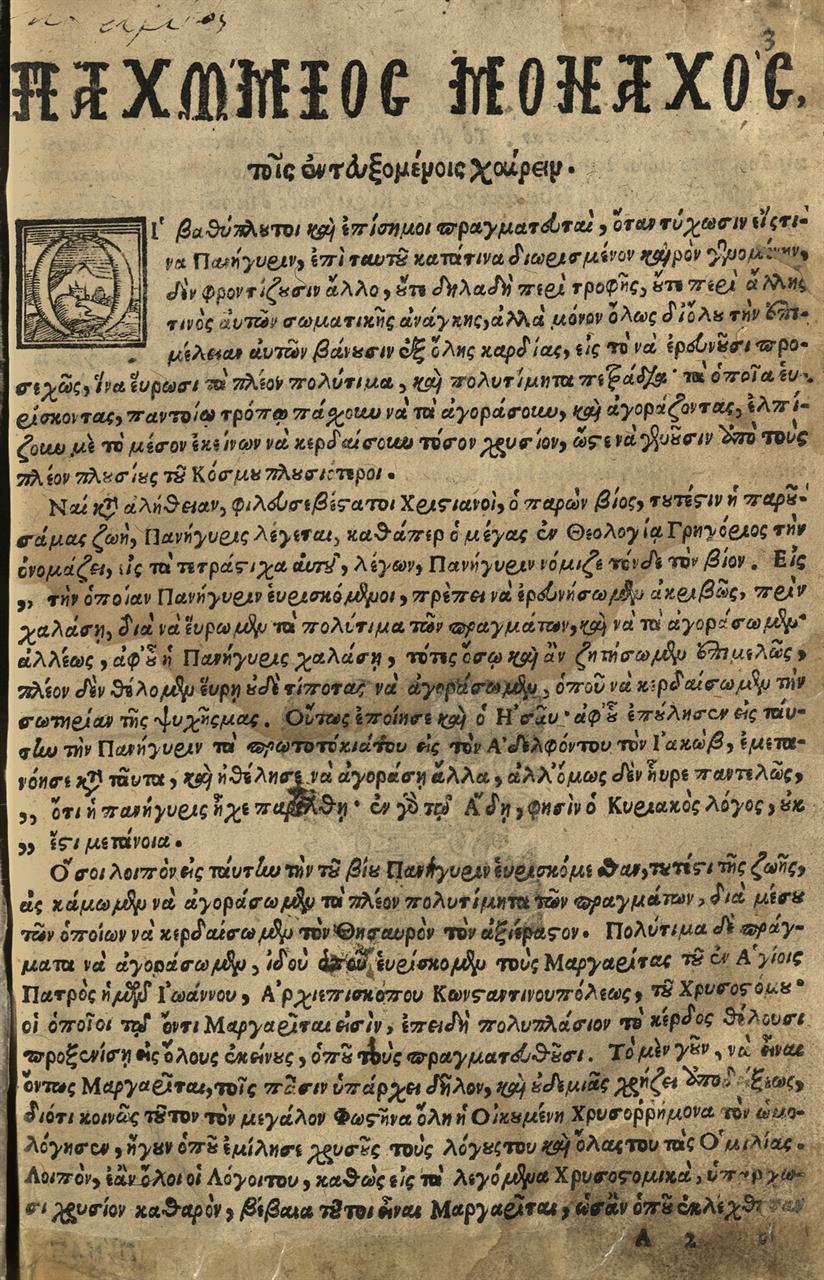 3
ΠΑΧΩ΄ΜΙΟΣ ΜΟΝΑΧΟ΄Σ,
τοῖς ἐντευξομένοις χαίρειν.
ΟΙ῾ βαθύπλουτοι καὶ ἐπίσημοι πραγματευταὶ, ὅταν τύχωσιν εἴς τι-
να Πανήγυριν, ἐπὶ ταυτοῦ κατά τινα διωρισμένον καιρὸν γινομένην,
δὲν φροντίζουσιν ἄλλο, οὔτε δηλαδὴ περὶ τροφῆς, οὔτε περὶ ἄλλης
τινὸς αὐτῶν σωματικῆς ἀνάγκης, ἀλλὰ μόνον ὅλως διόλου τὴν ἐπι-
μέλειαν αὐτῶν βάνουσιν ἐξ ὅλης καρδίας, εἰς τὸ νὰ ἐρευνοῦσι προ-
σεχῶς, ἵνα εὕρωσι τὰ πλέον πολύτιμα, καὶ πολυτίμητα πετράδια· τὰ ὁποῖα εὑ-
ρίσκοντας, παντοίῳ τρόπῳ πάσχουν νὰ τὰ ἀγοράσουν, καὶ ἀγοράζοντας, ἐλπί-
ζουν μὲ τὸ μέσον ἐκείνων νὰ κερδαίσουν τόσον χρυσίον, ὥστε νὰ γενοῦσιν ἀπὸ τοὺς
πλέον πλουσίους τοῦ Κόσμου πλουσιώτεροι.
Ναί κατ᾽ ἀλήθειαν, φιλευσεβέστατοι Χριστιανοὶ, ὁ παρὼν βίος, τουτέστιν ἡ παροῦ-
σά μας ζωὴ, Πανήγυρις λέγεται, καθάπερ ὁ μέγας ἐν Θεολογίᾳ Γρηγόριος τὴν
ὀνομάζει, εἰς τὰ τετράστιχα αὐτοῦ, λέγων, Πανήγυριν νόμιζε τόνδε τὸν βίον. Εἰς
„ τὴν ὁποίαν Πανήγυριν εὑρισκόμενοι, πρέπει νὰ ἐρευνήσωμεν ἀκριβῶς, πρὶν
χαλάσῃ, διὰ νὰ εὕρωμεν τὰ πολύτιμα τῶν πραγμάτων, καὶ νὰ τὰ ἀγοράσωμεν·
ἀλλέως, ἀφ᾽ οὗ ἡ Πανήγυρις χαλάσῃ, τότες ὅσῳ καὶ ἂν ζητήσωμεν ἐπιμελῶς,
πλέον δὲν θέλομεν εὕρῃ οὐδὲ τίποτας νὰ ἀγοράσωμεν, ὁποῦ νὰ κερδαίσωμεν τὴν
σωτηρίαν τῆς ψυχῆς μας. Οὕτως ἐποίησε καὶ ὁ Η᾽σαῦ· ἀφ᾽ οὗ ἐπούλησεν εἰς ταύ-
την τὴν Πανήγυριν τὰ πρωτοτόκιά του εἰς τὸν Α᾽δελφόν του τὸν Ι᾽ακὼβ, ἐμετα-
νόησε κατὰ ταῦτα, καὶ ἠθέλησε νὰ ἀγοράσῃ ἄλλα, ἀλλ᾽ ὅμως δὲν ηὗρε παντελῶς,
„ ὅτι ἡ πανήγυρις ἦχε παρέλθῃ· ἐν γὰρ τῷ Α῞δῃ, φησὶν ὁ Κυριακὸς λόγος, οὐκ
„ ἔστι μετάνοια.
Ο῞σοι λοιπὸν εἰς ταύτην τὴν τοῦ βίου Πανήγυριν εὑρισκόμεθαν, τουτέστι τῆς ζωῆς,
ἂς κάμωμεν νὰ ἀγοράσωμεν τὰ πλέον πολυτίμητα τῶν πραγμάτων, διὰ μέσου
τῶν ὁποίων νὰ κερδαίσωμεν τὸν Θησαυρὸν τὸν ἀξιέραστον. Πολύτιμα δὲ πράγ-
ματα νὰ ἀγοράσωμεν, ἰδοὺ ὁποῦ εὑρίσκομεν τοὺς Μαργαρίτας τοῦ ἐν Α῾γίοις
Πατρὸς ἡμῶν Ι᾽ωάννου, Α᾽ρχιεπισκόπου Κωνσταντινουπόλεως, τοῦ Χρυσοστόμου·
οἱ ὁποῖοι τῷ ὄντι Μαργαρῖται εἰσὶν, ἐπειδὴ πολυπλάσιον τὸ κέρδος θέλουσι
προξενίσῃ εἰς ὅλους ἐκείνους, ὁποῦ τοὺς πραγματευθοῦσι. Τὸ μὲν γοῦν, νὰ εἶναι
ὄντως Μαργαρῖται, τοῖς πᾶσιν ὑπάρχει δῆλον, καὶ οὐδεμιᾶς χρῄζει ἀποδείξεως,
διότι κοινῶς τοῦτον τὸν μεγάλον Φωστῆνα ὅλη ἡ Οἰκουμένη Χρυσορρήμονα τὸν ὡμο-
λόγησεν, ἤγουν ὁποῦ ἐμίλησε χρυσοῦς τοὺς λόγους του καὶ ὅλας του τὰς Ο῾μιλίας.
Λοιπὸν, ἐὰν ὅλοι οἱ Λόγοι του, καθὼς εἰς τὰ λεγόμενα Χρυσοστομικὰ, ὑπάρχω-
σι χρυσίον καθαρὸν, βέβαια τοῦτοι εἶναι Μαργαρῖται, ὡσὰν ὁποῦ ἐκλέχθησαν
A 2